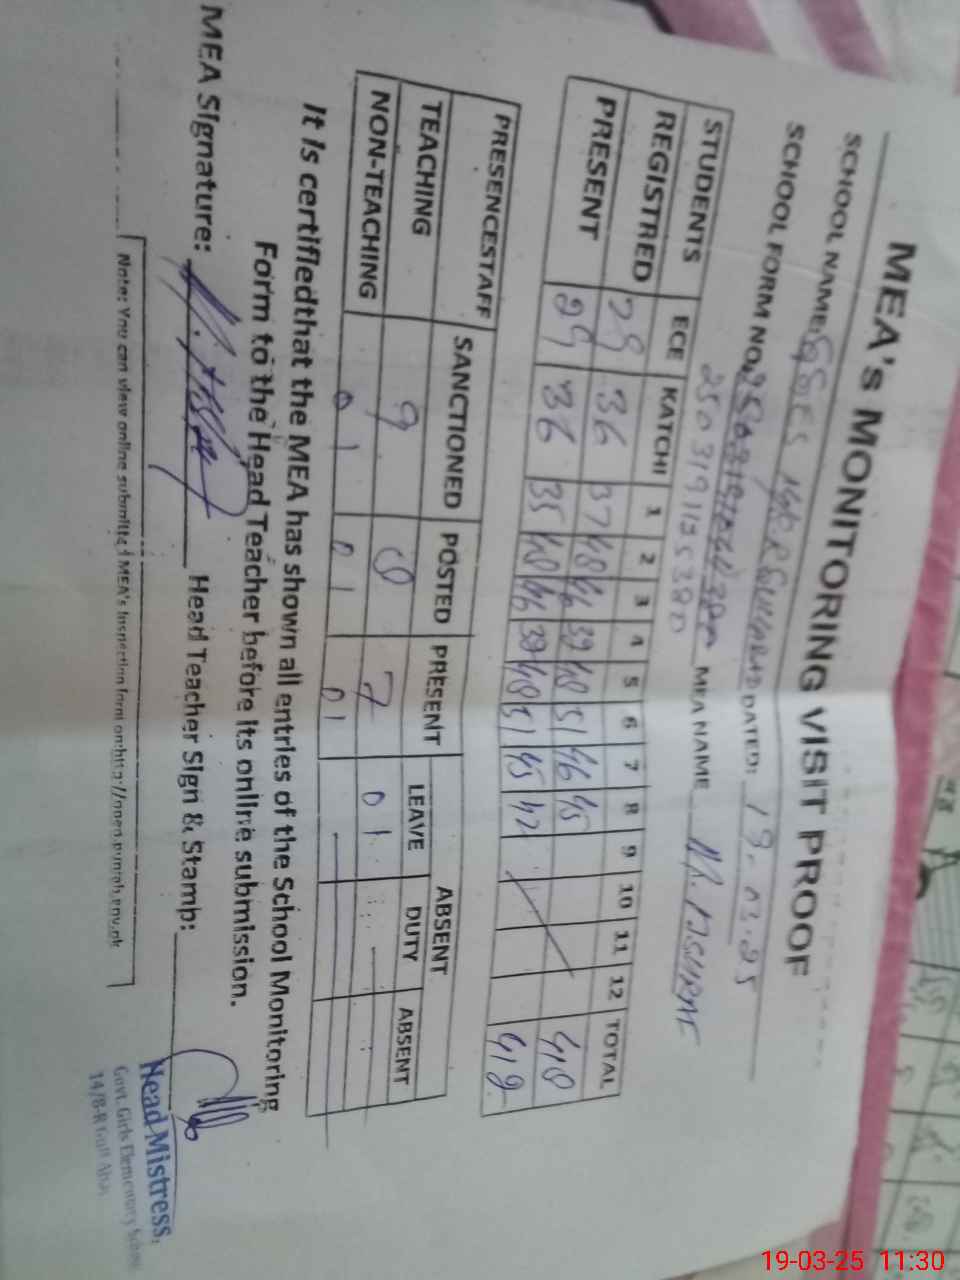 MEA's MONITORING VISIT PROOF
SCHOOL NAME:
SCHOOL FORM NO. DATED: 19.03.25
25031911253380 MEA NAME M. ASHRAF
STUDENTS ECE KATCHI 1 2 3 4 5 6 7 8 9 10 11 12 TOTAL
REGISTRED 29 36 37 48 46 39 48 51 46 45
PRESENT 29 36 35 48 46 39 48 51 45 42
PRESENCESTAFF SANCTIONED POSTED PRESENT ABSENT
LEAVE DUTY ABSENT
TEACHING 9 08 7 01
NON-TEACHING 01 01 01
It is certifiedthat the MEA has shown all entries of the School Monitoring
Form to the Head Teacher before its online submission.
MEA Signature: Head Teacher Sign & Stamb:
Head Mistress,
Govt. Girls Elementary School
14/8-R
Note: You can view online submitted MEA's Inspection form on
19-03-25 11:30